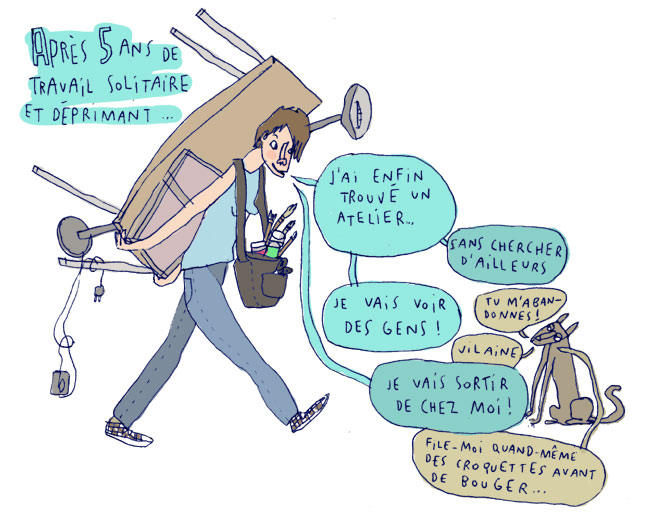 APRÈS 5 ANS DE
TRAVAIL SOLITAIRE
ET DÉPRIMANT...
J'AI ENFIN
TROUVÉ UN
ATELIER...
SANS CHERCHER
D'AILLEURS
JE VAIS VOIR
DES GENS !
TU M'ABAN-
DONNES !
VILAINE
JE VAIS SORTIR
DE CHEZ MOI !
FILE-MOI QUAND-MÊME
DES CROQUETTES AVANT
DE BOUGER...